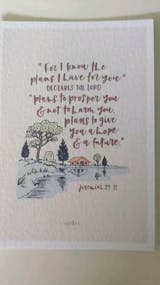 "For I know the
plans I have for you"
DECLARES THE LORD
"plans to prosper you
& not to harm you,
plans to give
you a hope
& a future."
Jeremiah 29:11